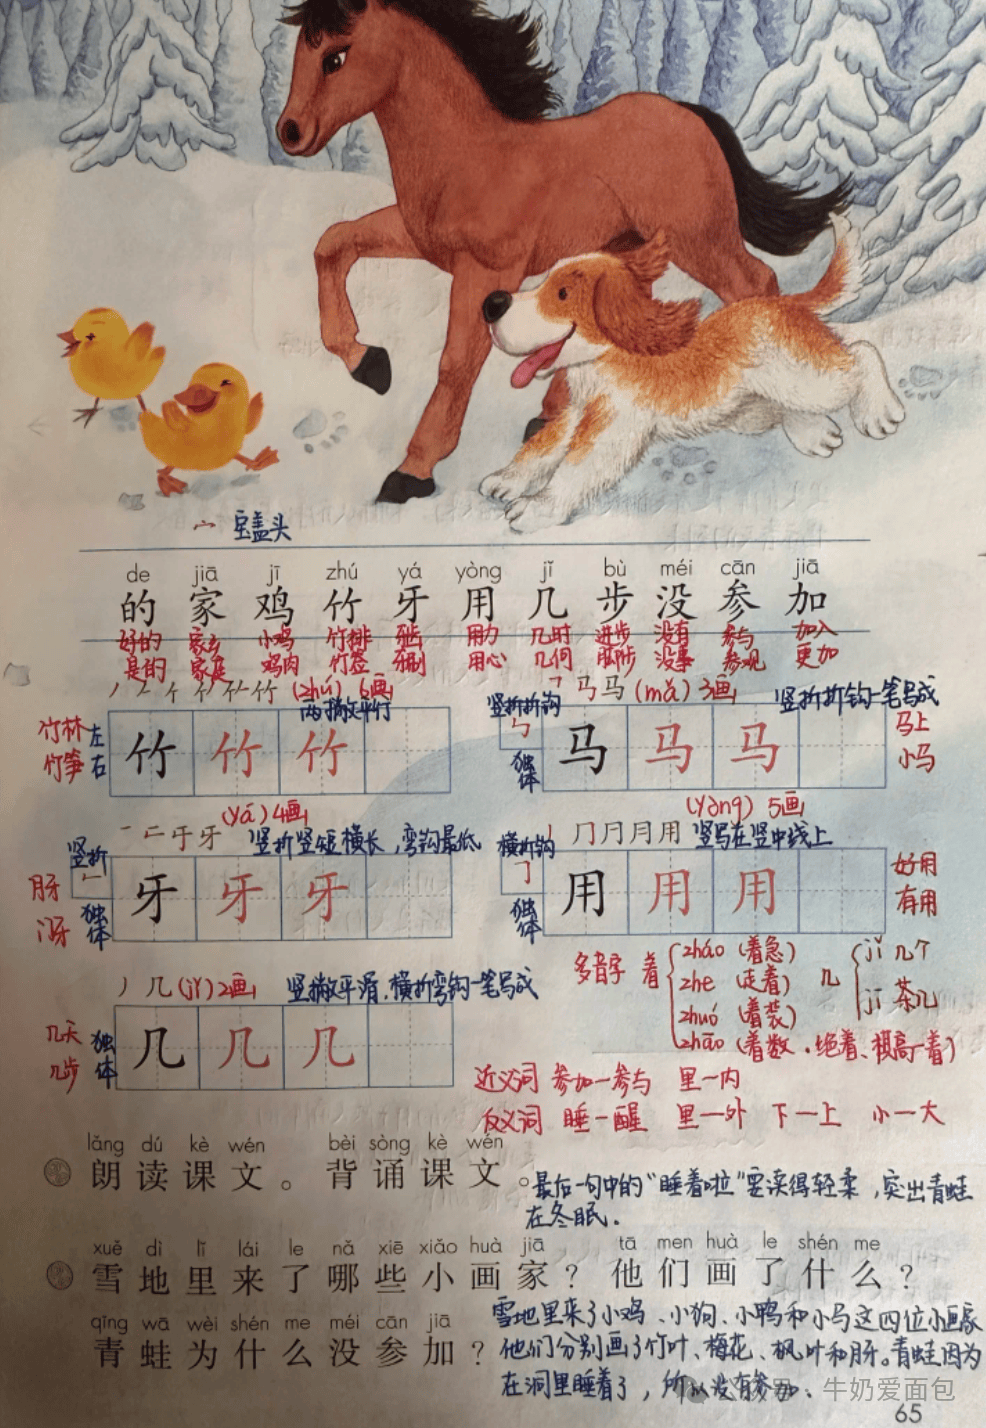 宀 宝盖头
de jiā jī zhú yá yòng jǐ bù méi cān jiā
的 家 鸡 竹 牙 用 几 步 没 参 加
好的 家乡 小鸡 竹排 牙齿 用力 几时 进步 没有 参与 加入
是的 家庭 鸡肉 竹签 牙刷 用心 几何 脚步 没事 参观 更加
(zhú) 6画
两撇平行
竹林 竹笋
左右
竹 竹 竹
竖折折钩
马 (mǎ) 3画
竖折折钩一笔写成
独体
马 马 马
马上
小马
(yá) 4画
竖折
牙 竖折竖短横长，弯钩最低
月牙
独体
牙 牙 牙
(yòng) 5画
横折钩
用 竖写在竖中线上
独体
用 用 用
好用
有用
几 (jǐ) 2画 竖撇平滑，横折弯钩一笔写成
几天
几步
独体
几 几 几
多音字 着
zháo (着急)
zhe (走着)
zhuó (着装)
zhāo (着数、绝着、棋高一着)
几
jǐ 几个
jī 茶几
近义词 参加—参与 里—内
反义词 睡—醒 里—外 下—上 小—大
lǎng dú kè wén bèi sòng kè wén
朗读课文。背诵课文。
最后一句中的“睡着啦”要读得轻柔，突出青蛙
在冬眠.
xuě dì lǐ lái le nǎ xiē xiǎo huà jiā tā men huà le shén me
雪地里来了哪些小画家？他们画了什么？
qīng wā wèi shén me méi cān jiā
青蛙为什么没参加？
雪地里来了小鸡、小狗、小鸭和小马这四位小画家
他们分别画了竹叶、梅花、枫叶和月牙。青蛙因为
在洞里睡着了，所以没有参加.
牛奶爱面包
65